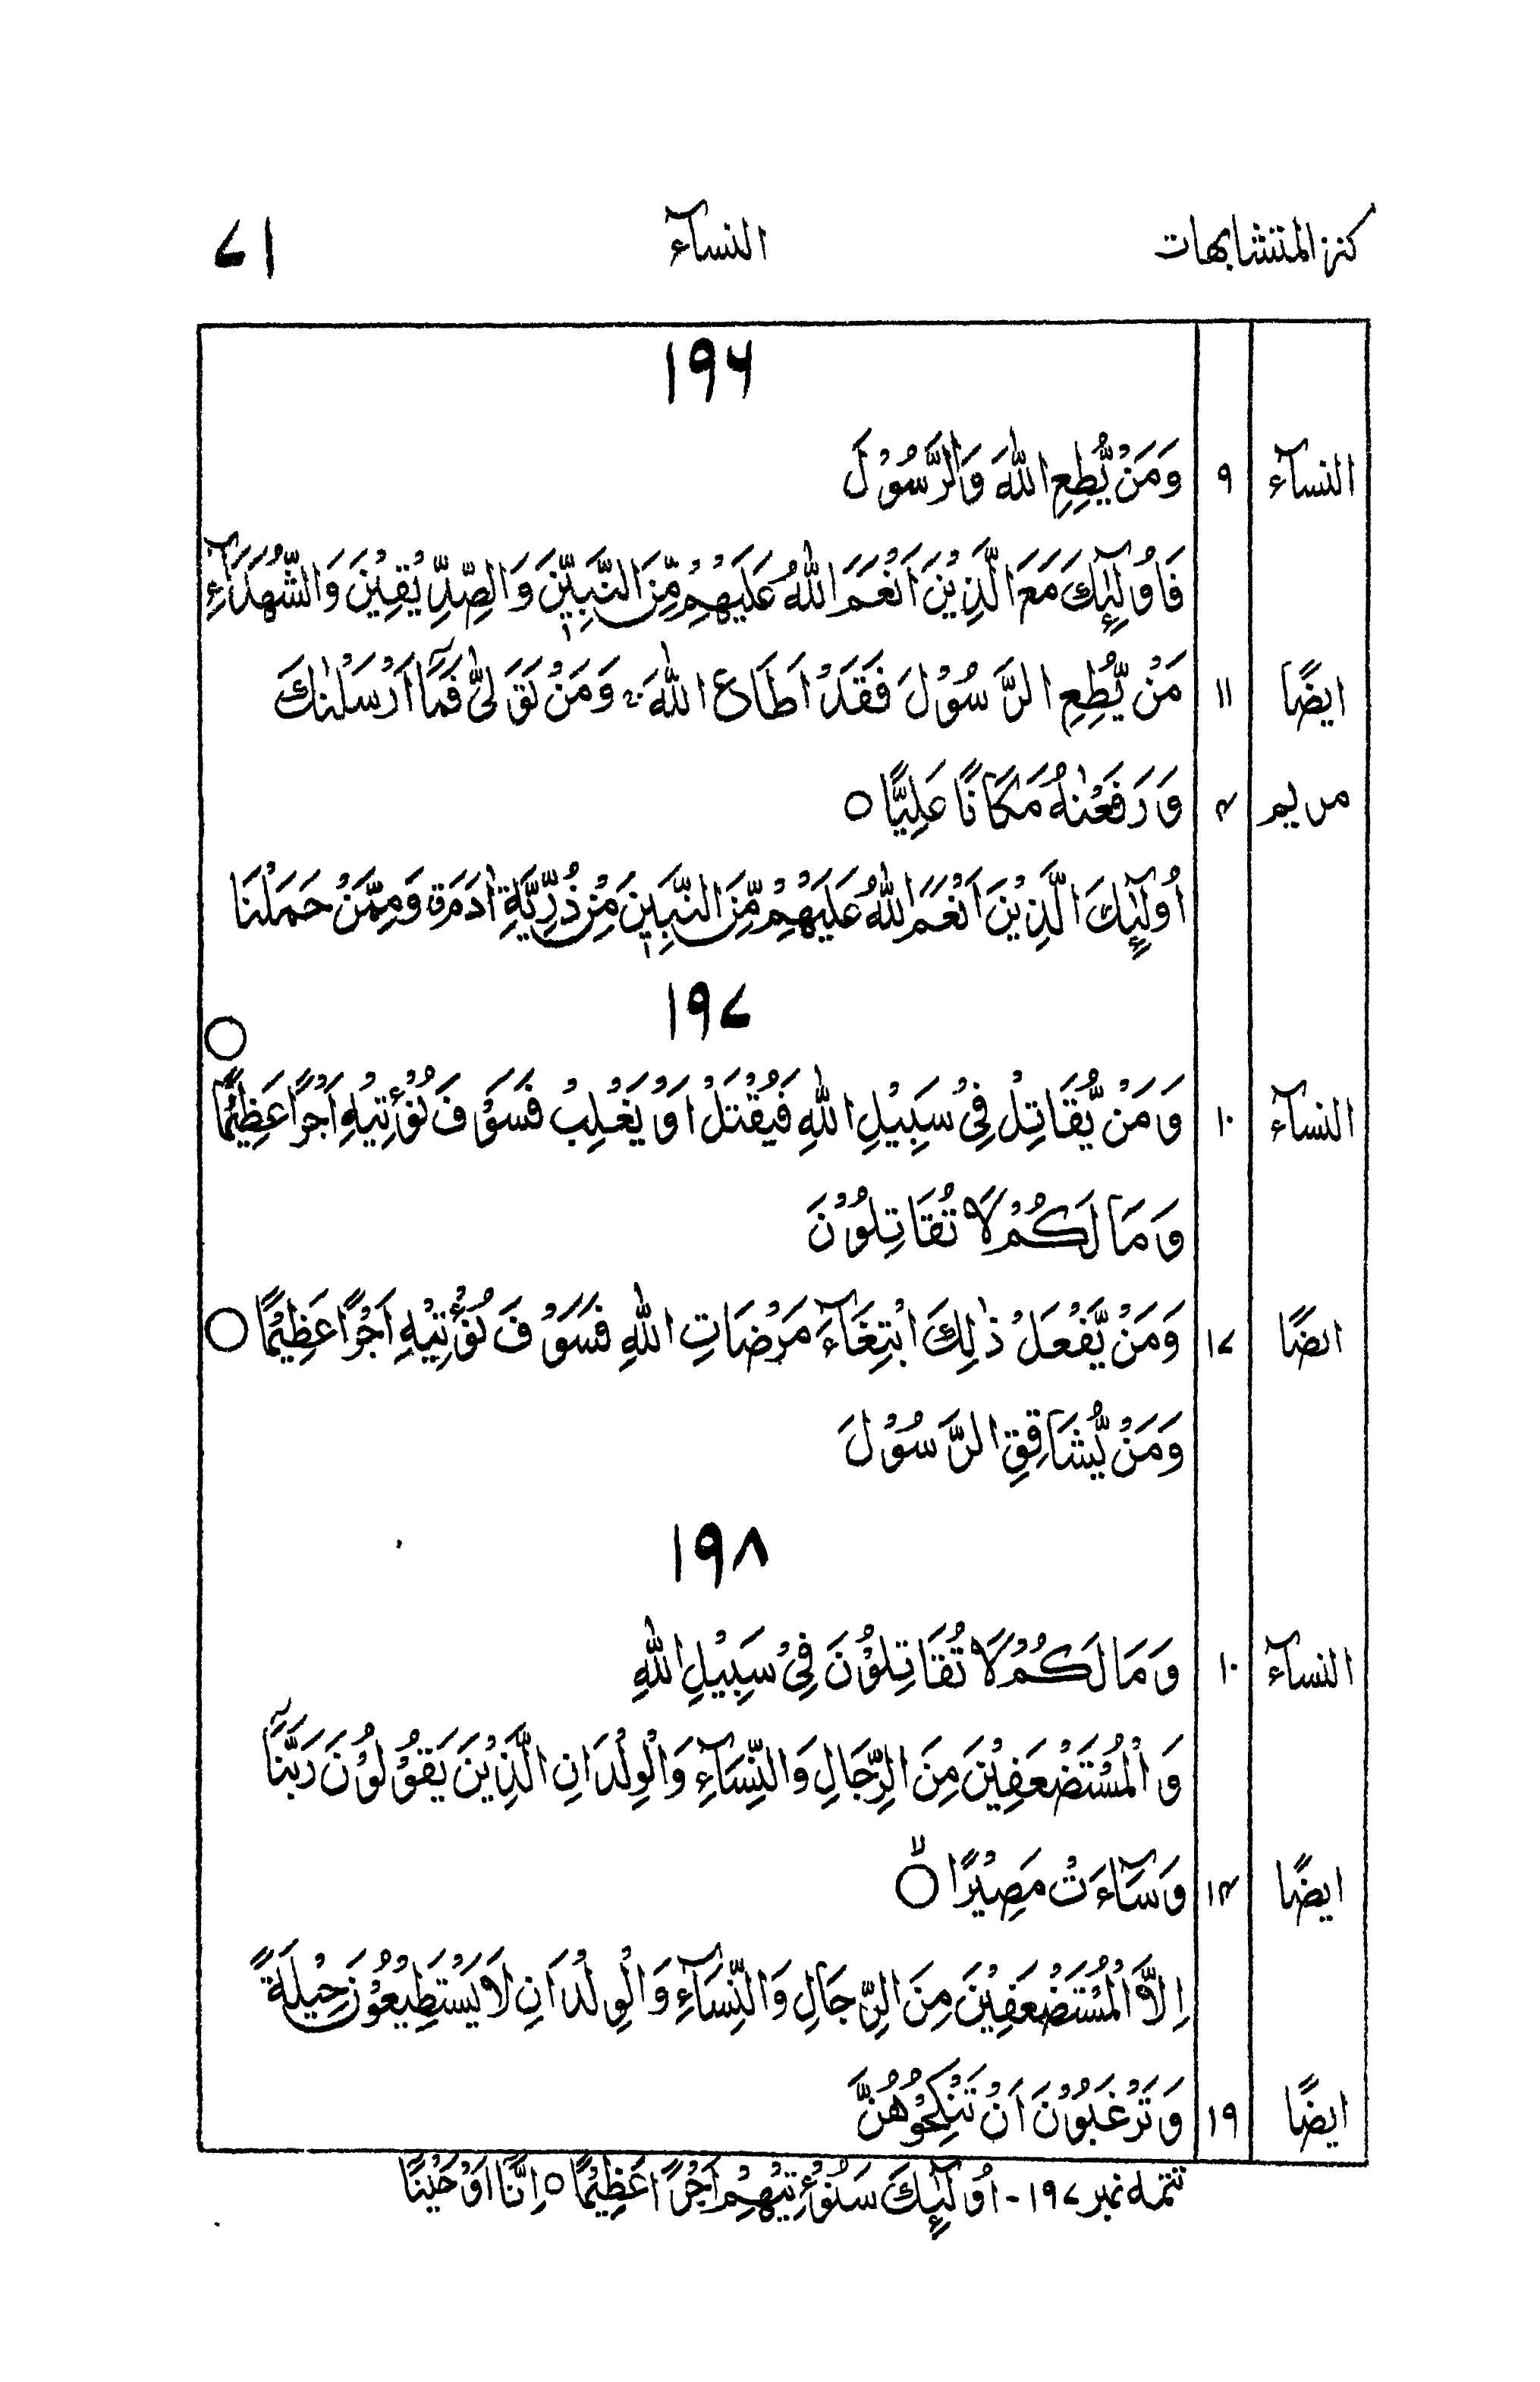 كنز المتشابهات النسآء ٧١
١٩٦
النسآء ٩ وَمَنْ يُّطِعِ اللهَ وَالرَّسُوْلَ
فَاُولٰٓئِكَ مَعَ الَّذِيْنَ اَنْعَمَ اللهُ عَلَيْهِمْ مِّنَ النَّبِيّٖنَ وَالصِّدِّيْقِيْنَ وَالشُّهَدَآءِ
ايضًا ١١ مَنْ يُّطِعِ الرَّسُوْلَ فَقَدْ اَطَاعَ اللهَ ۚ وَمَنْ تَوَلّٰى فَمَآ اَرْسَلْنٰكَ
مريم ۴ وَرَفَعْنٰهُ مَكَانًا عَلِيًّا ○
اُولٰٓئِكَ الَّذِيْنَ اَنْعَمَ اللهُ عَلَيْهِمْ مِّنَ النَّبِيّٖنَ مِنْ ذُرِّيَّةِ اٰدَمَ ق وَمِمَّنْ حَمَلْنَا
١٩٧
النسآء ١٠ وَمَنْ يُّقَاتِلْ فِيْ سَبِيْلِ اللهِ فَيُقْتَلْ اَوْ يَغْلِبْ فَسَوْفَ نُؤْتِيْهِ اَجْرًا عَظِيْمًا ○
وَمَا لَكُمْ لَا تُقَاتِلُوْنَ
ايضًا ١٧ وَمَنْ يَّفْعَلْ ذٰلِكَ ابْتِغَآءَ مَرْضَاتِ اللهِ فَسَوْفَ نُؤْتِيْهِ اَجْرًا عَظِيْمًا ○
وَمَنْ يُّشَاقِقِ الرَّسُوْلَ
١٩٨
النسآء ١٠ وَمَا لَكُمْ لَا تُقَاتِلُوْنَ فِيْ سَبِيْلِ اللهِ
وَالْمُسْتَضْعَفِيْنَ مِنَ الرِّجَالِ وَالنِّسَآءِ وَالْوِلْدَانِ الَّذِيْنَ يَقُوْلُوْنَ رَبَّنَآ
ايضًا ١۴ وَسَآءَتْ مَصِيْرًا ○ لا
اِلَّا الْمُسْتَضْعَفِيْنَ مِنَ الرِّجَالِ وَالنِّسَآءِ وَالْوِلْدَانِ لَا يَسْتَطِيْعُوْنَ حِيْلَةً
ايضًا ١٩ وَتَرْغَبُوْنَ اَنْ تَنْكِحُوْهُنَّ
تتمه نمبر ١٩٧ - اُولٰٓئِكَ سَنُؤْتِيْهِمْ اَجْرًا عَظِيْمًا ○ اِنَّآ اَوْحَيْنَآ